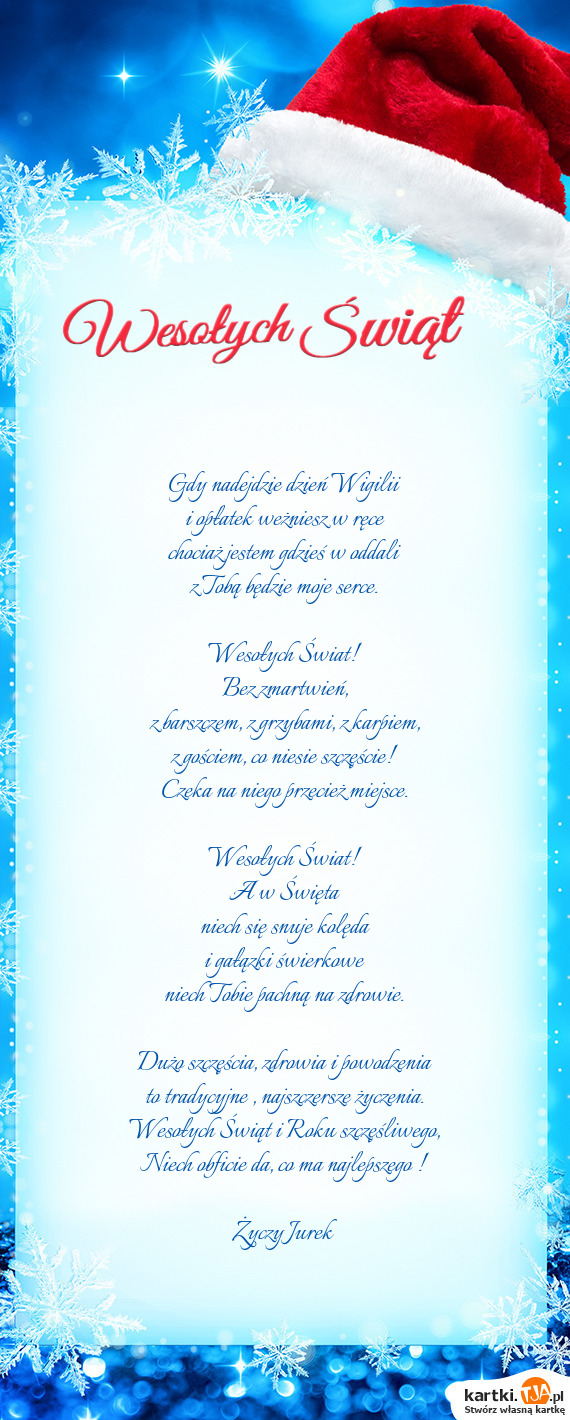 Wesołych Świąt
Gdy nadejdzie dzień Wigilii
i opłatek weźniesz w ręce
chociaż jestem gdzieś w oddali
z Tobą będzie moje serce.
Wesołych Świat!
Bez zmartwień,
z barszczem, z grzybami, z karpiem,
z gościem, co niesie szczęście!
Czeka na niego przecież miejsce.
Wesołych Świat!
A w Święta
niech się snuje kolęda
i gałązki świerkowe
niech Tobie pachną na zdrowie.
Dużo szczęścia, zdrowia i powodzenia
to tradycyjne , najszczersze życzenia.
Wesołych Świąt i Roku szczęśliwego,
Niech obficie da, co ma najlepszego !
Życzy Jurek
kartki.TJA.pl
Stwórz własną kartkę